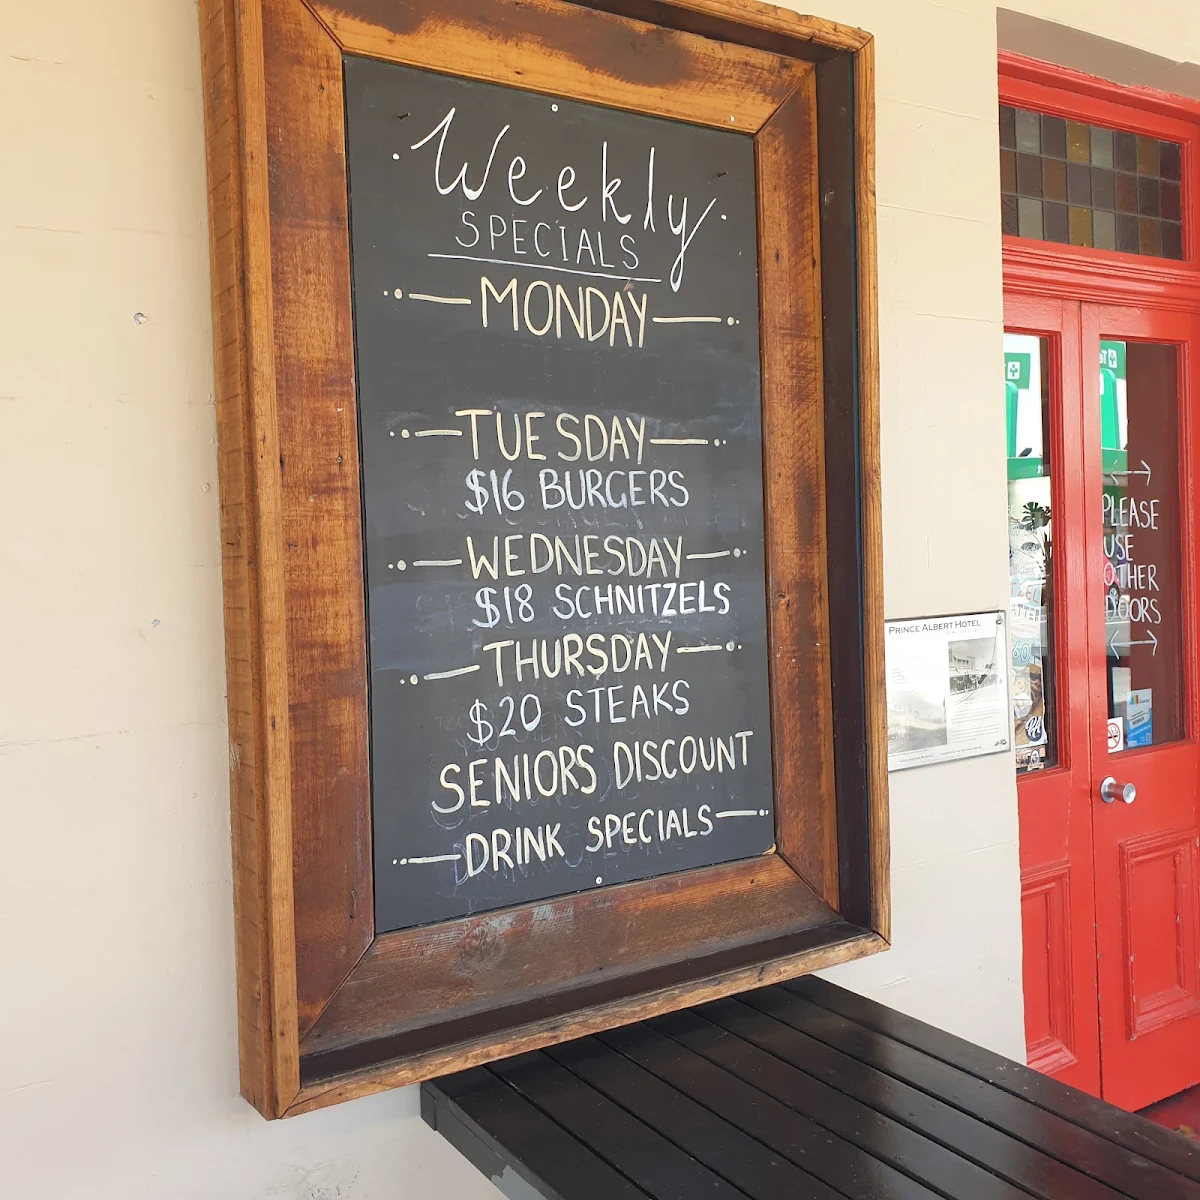 Weekly
SPECIALS
MONDAY
TUESDAY
$16 BURGERS
WEDNESDAY
$18 SCHNITZELS
THURSDAY
$20 STEAKS
SENIORS DISCOUNT
DRINK SPECIALS
PRINCE ALBERT HOTEL
PLEASE
USE
OTHER
DOORS